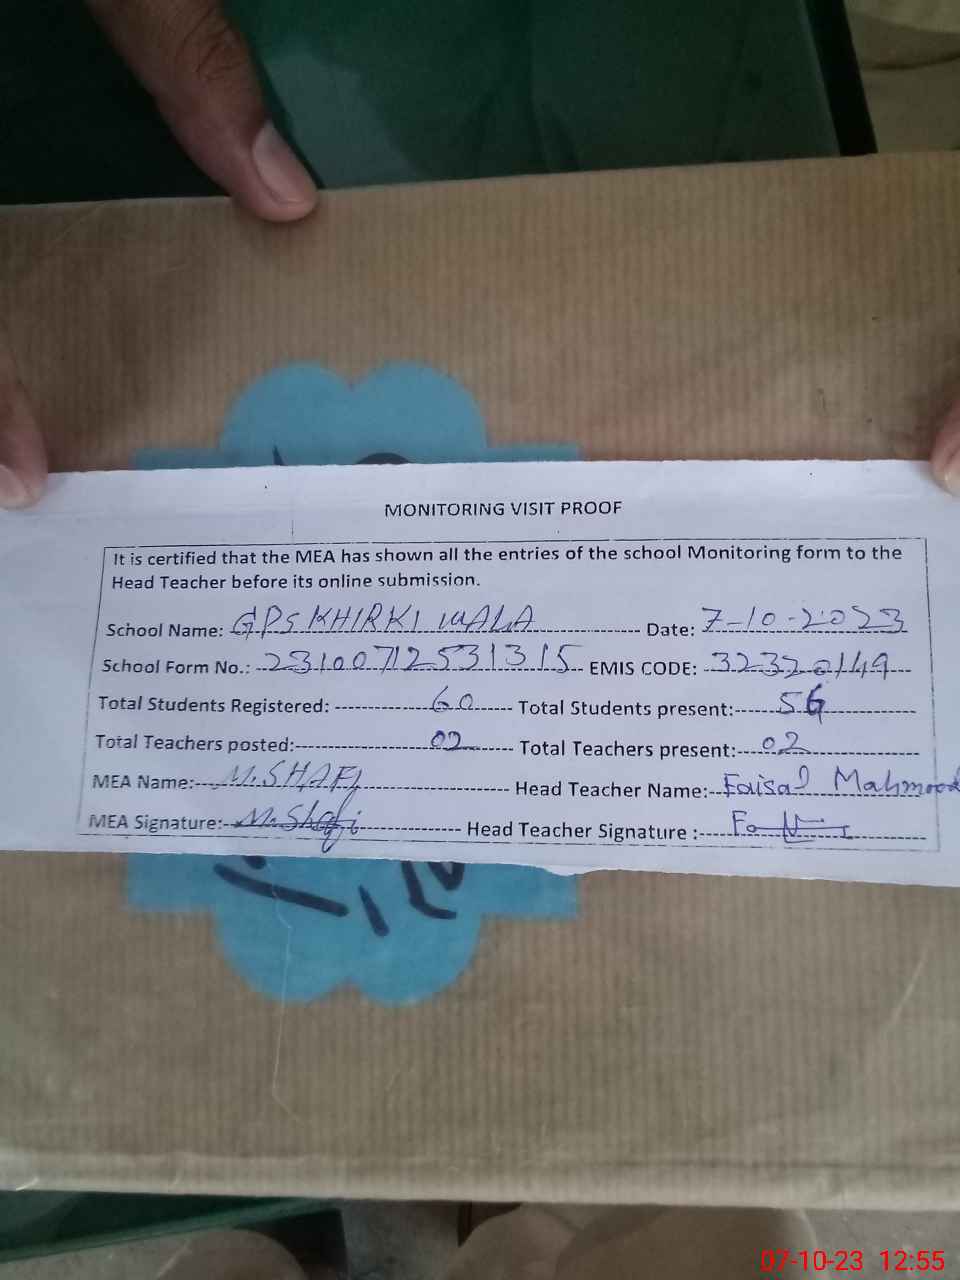 MONITORING VISIT PROOF
It is certified that the MEA has shown all the entries of the school Monitoring form to the
Head Teacher before its online submission.
School Name: GPS KHIRKI WALA Date: 7-10-2023
School Form No.: 231007125313 15 EMIS CODE: 32320149
Total Students Registered: 60 Total Students present: 56
Total Teachers posted: 02 Total Teachers present: 02
MEA Name: M.SHAFI Head Teacher Name: Faisal Mahmood
MEA Signature: M.Shafi Head Teacher Signature :
07-10-23 12:55